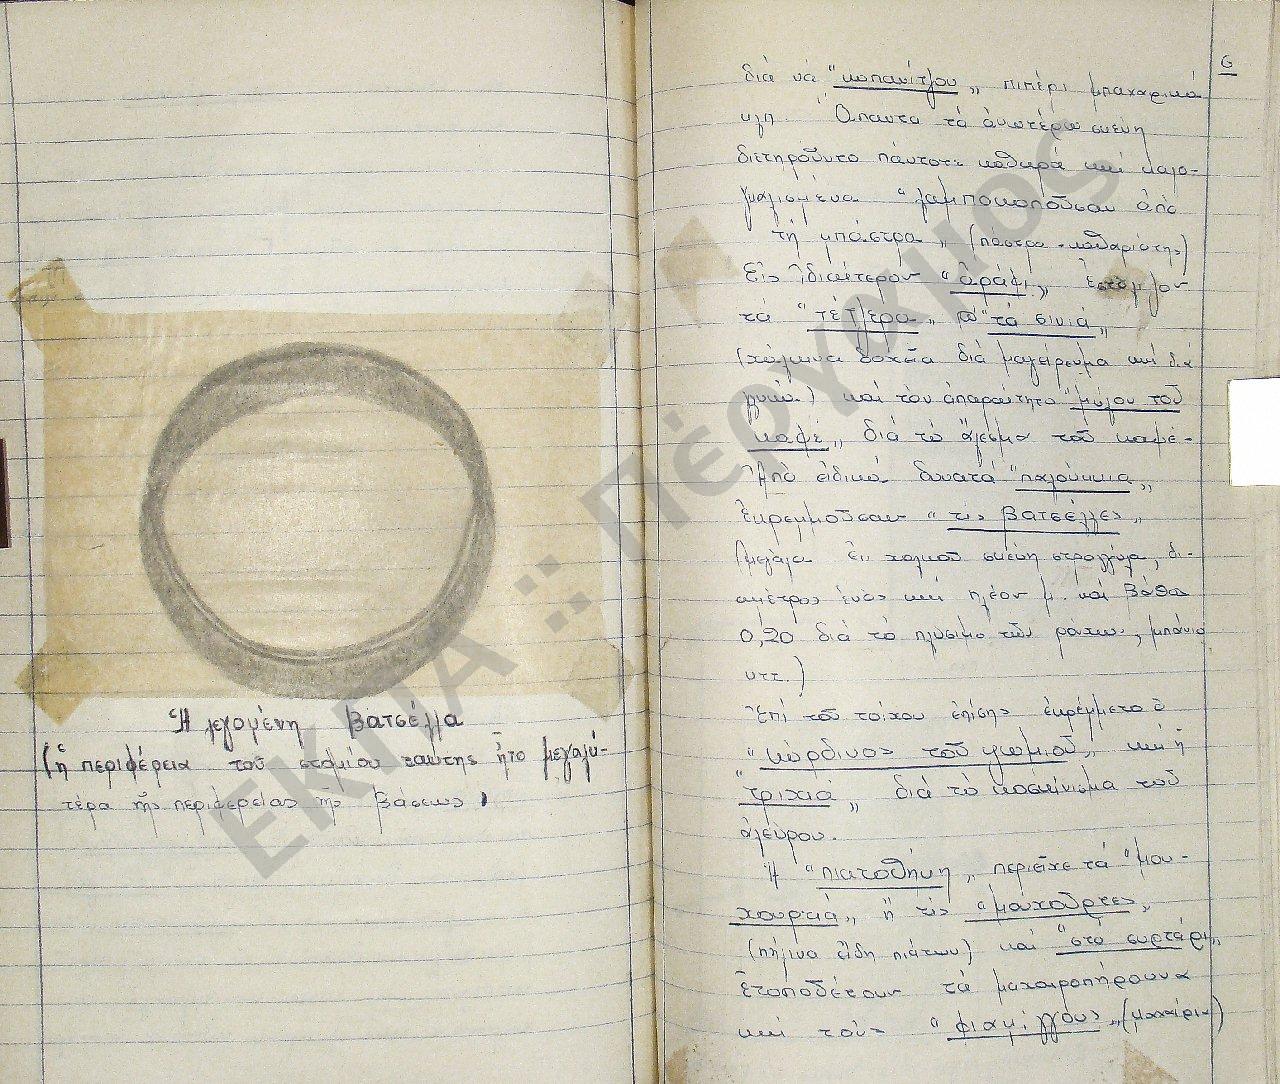 Ἡ λεγομένη βατσέλλα
(ἡ περιφέρεια τοῦ στομίου ταύτης ἦτο μεγαλυ-
τέρα τῆς περιφερείας τῆς βάσεως)
6
διὰ νὰ "κοπανίτζου„ πιπέρι μπαχαρικά
κλπ. Ὅπαντα τὰ ἀνωτέρω σκεύη
διετηροῦντο πάντοτε καθαρὰ καὶ καλο-
γυαλισμένα "λαμποκοποῦσαν ἀπὸ
τὴ μπάστρα„ (πάστρα - καθαριότης)
Εἰς ἰδιαίτερον "ὀράφι„ ἔστελλον
τὰ "τέτζερα„ "τὰ σινιά„
(χάλκινα δοχεῖα διὰ μαγείρευμα καὶ διὰ
γλυκὰ) καὶ τὸν ἀπαραίτητο "μύλου τοῦ
καφέ„ διὰ τὸ ἄλεσμα τοῦ καφέ-
Ἀπὸ εἰδικὰ δυνατὰ "παλούκια„
ἐκρεμμοῦσαν "τις βατσέλλες„
(μεγάλα ἐκ χαλκοῦ σκεύη στρογγύλα, δι-
αμέτρου ἑνὸς καὶ πλέον μ. καὶ βάθος
0,20 διὰ τὸ πλύσιμο τῶν ρούχων, μπάνιο
κττ.)
Ἐπὶ τοῦ τοίχου ἐπίσης ἐκρέμμετο ὁ
"κόρδινος τοῦ ψωμιοῦ„ καὶ ἡ
"τριχιά„ διὰ τὸ κοσκίνισμα τοῦ
ἀλεύρου.
Ἡ "πιατοθήκη„ περιεῖχε τὰ "μου-
χουρκά„ ἢ τὶς "μουχοῦρτες„
(πήλινα εἴδη πιάτων) καὶ "στὸ συρτάρι„
ἐτοποθέτουν τὰ μαχαιροπήρουνα
καὶ τοὺς "φιαμίγγους„ (μαχαίρια)
ΕΚΠΑ :: Πέργαμος